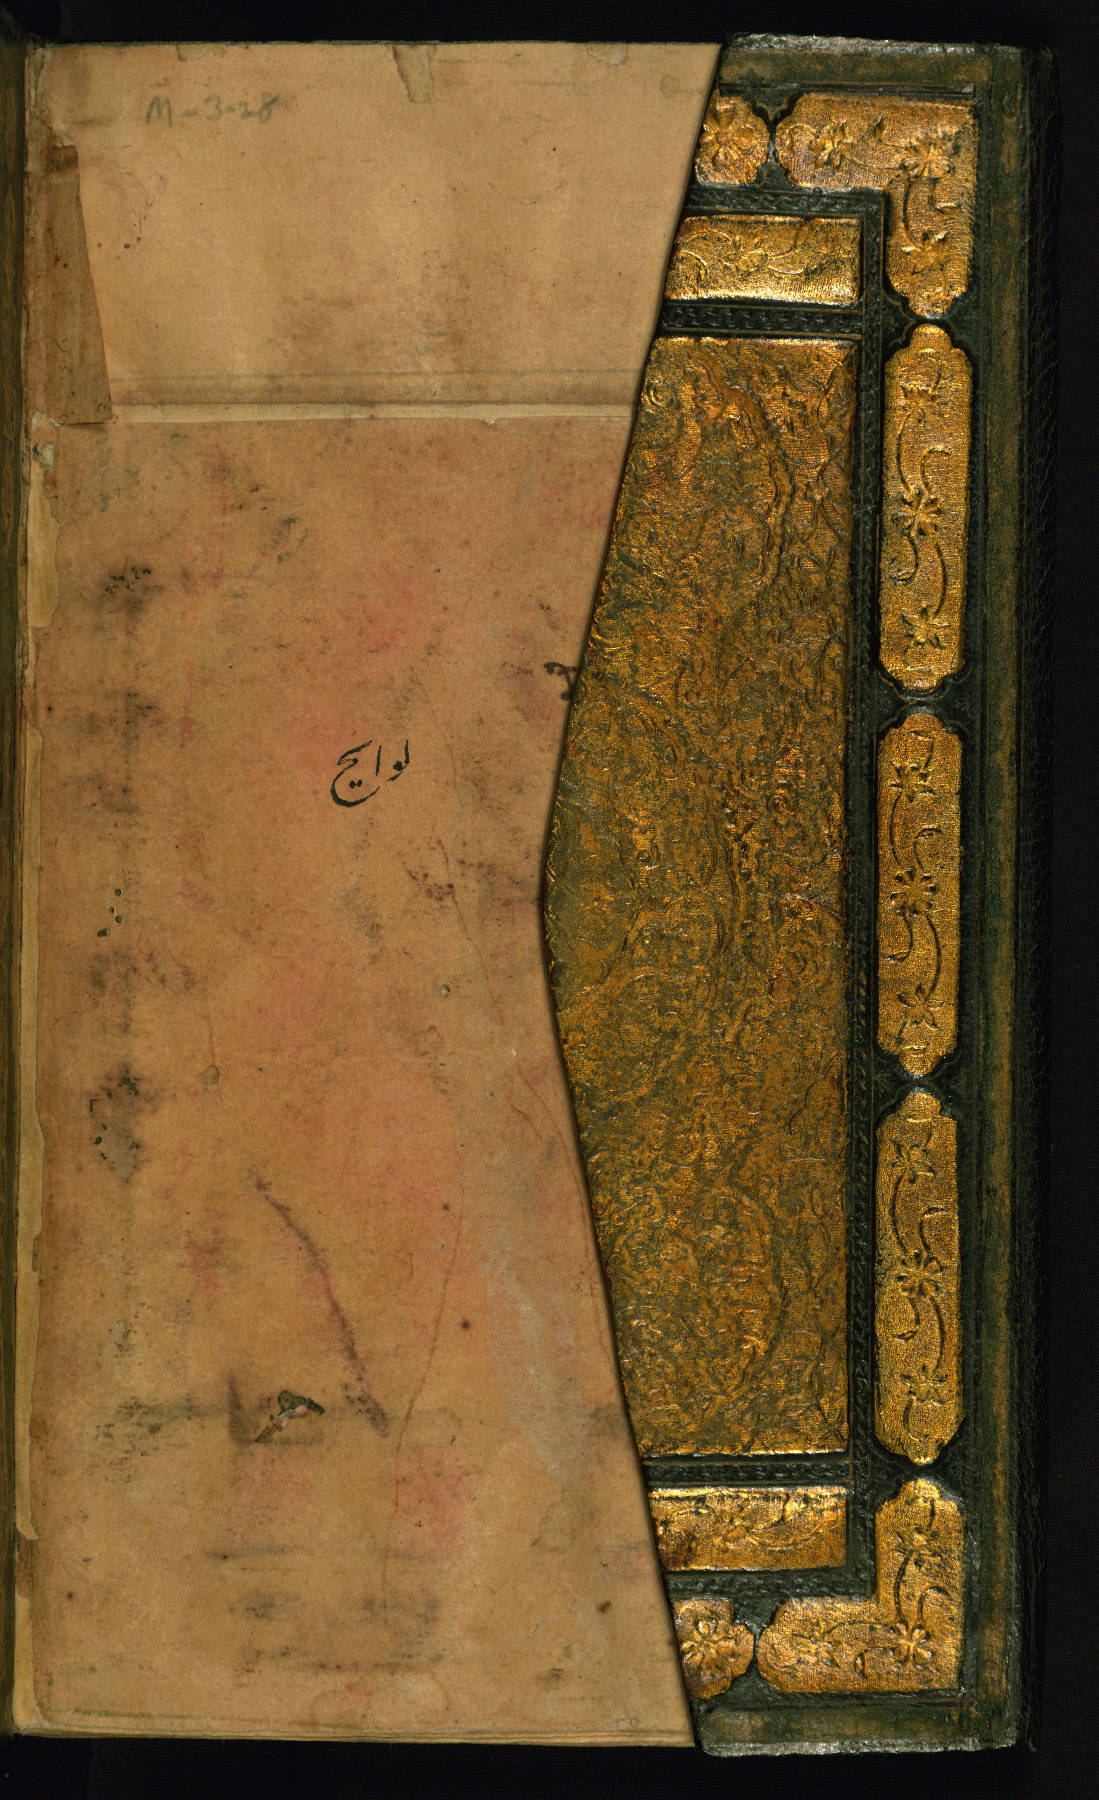 M-3-28
لوایح